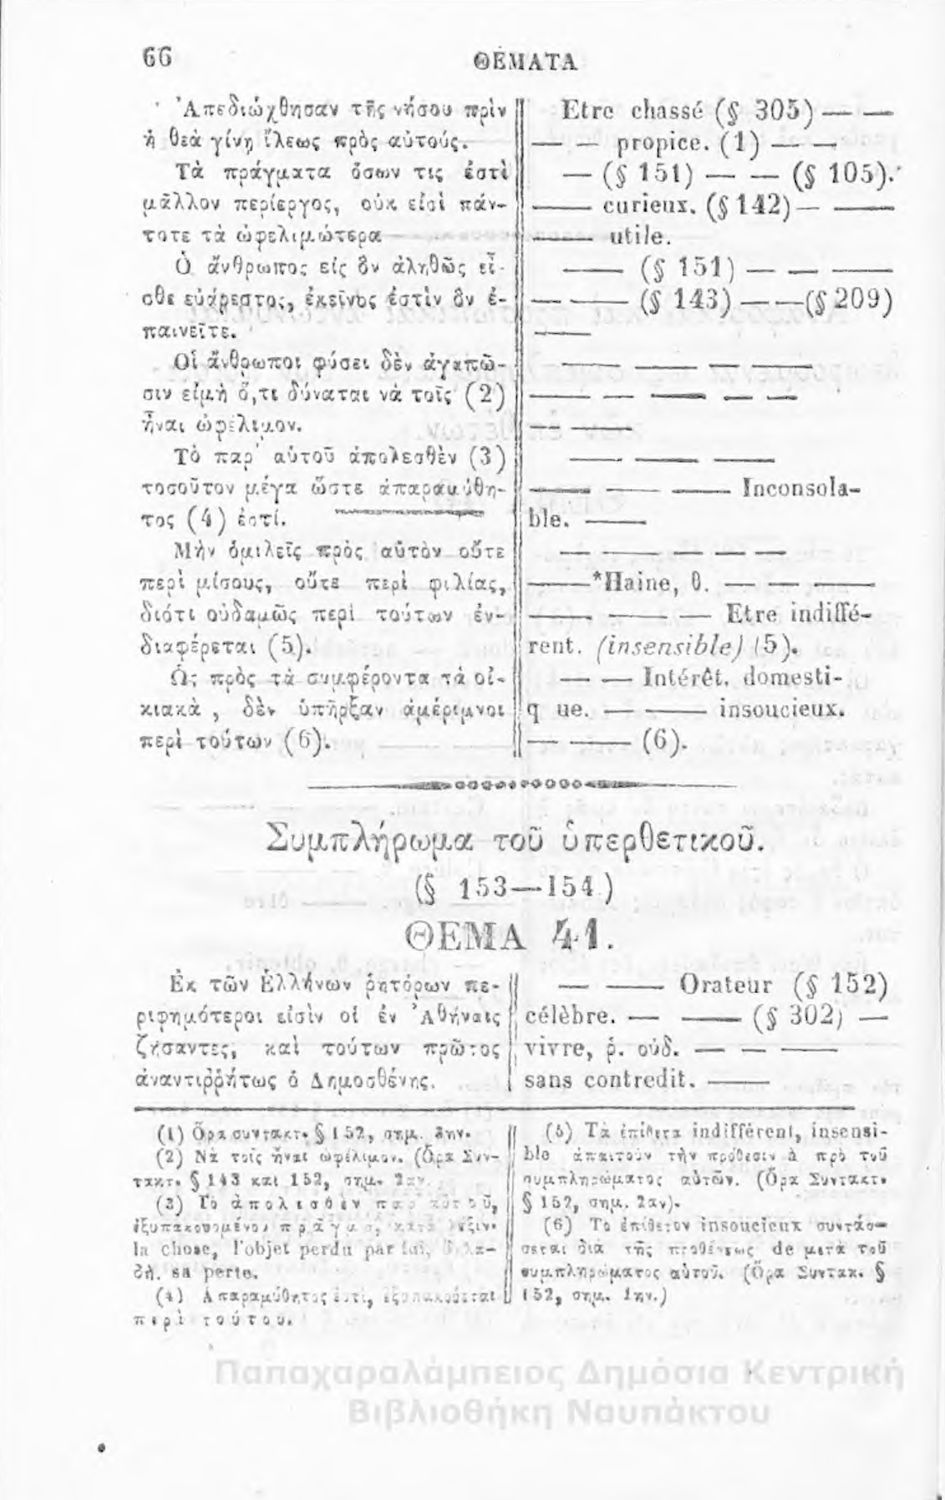 66
ΘΕΜΑΤΑ
Ἀπεδιώχθησαν τῆς νήσου πρὶν
ἢ θεὰ γίνῃ ἵλεως πρὸς αὐτούς.
Τὰ πράγματα ὅσων τις ἐστὶ
μᾶλλον περίεργος, οὐκ εἰσὶ πάν-
τοτε τὰ ὠφελιμώτερα
Ὁ ἄνθρωπος εἰς ὃν ἀληθῶς εἶ-
σθε εὐάρεστος, ἐκεῖνος ἐστὶν ὃν ἐ-
παινεῖτε.
Οἱ ἄνθρωποι φύσει δὲν ἀγαπῶ-
σιν εἰμὴ ὅ,τι δύναται νὰ τοῖς (2)
ἦναι ὠφέλιμον.
Τὸ παρ' αὐτοῦ ἀπολεσθὲν (3)
τοσοῦτον μέγα ὥστε ἀπαραμύθη-
τος (4) ἐστί.
Μὴν ὁμιλεῖς πρὸς αὐτὸν οὔτε
περὶ μίσους, οὔτε περὶ φιλίας,
διότι οὐδαμῶς περὶ τούτων ἐν-
διαφέρεται (5).
Ὡς πρὸς τὰ συμφέροντα τὰ οἰ-
κιακὰ, δὲν ὑπῆρξαν ἀμέριμνοι
περὶ τούτων (6).
Etre chassé (§ 305) — —
— — propice. (1) — —
— (§ 151) — — (§ 105).
—— curieux. (§ 142) — ——
—— utile.
—— (§ 151) — — ——
— — —— (§ 143) — — (§ 209)
——
—— —— — ——
—— — — — —
— — ——
—— — ——
—— — —— Inconsola-
ble. ——
— — — — —
——*Haine, θ. — — ——
—— — —— Etre indiffé-
rent. (insensible) (5).
— — Intérêt. domesti-
que. — — —— insoucieux.
— — —— (6).
Συμπλήρωμα τοῦ ὑπερθετικοῦ.
(§ 153—154)
ΘΕΜΑ 41.
Ἐκ τῶν Ἑλλήνων ῥητόρων πε-
ριφημότεροι εἰσὶν οἱ ἐν Ἀθήναις
ζήσαντες, καὶ τούτων πρῶτος
ἀναντιῤῥήτως ὁ Δημοσθένης.
— —— Orateur (§ 152)
célèbre. — —— (§ 302) —
vivre, ῥ. οὐδ. — — ——
sans contredit. ——
(1) Ὅρα συντακτ. § 152, σημ. 3ην.
(2) Νὰ τοῖς ἦναι ὠφέλιμον. (Ὅρα Συν-
τακτ. § 143 καὶ 152, σημ. 2αν.
(3) Τὸ ἀπολεσθὲν παρ' αὐτοῦ,
ἐξυπακουομένου πρᾶγμα, κατὰ λέξιν·
la chose, l'objet perdu par lui, δηλα-
δή. sa perte.
(4) Ἀπαραμύθητος ἐστί, ἐξυπακούεται
περὶ τούτου.
(5) Τὰ ἐπίθετα indifférent, insensi-
ble ἀπαιτοῦν τὴν πρόθεσιν à πρὸ τοῦ
συμπληρώματος αὐτῶν. (Ὅρα Συντακτ.
§ 152, σημ. 2αν).
(6) Τὸ ἐπίθετον insoucieux συντάσ-
σεται διὰ τῆς προθέσεως de μετὰ τοῦ
συμπληρώματος αὐτοῦ. (Ὅρα Συντακ. §
152, σημ. 1ην.)
Παπαχαραλάμπειος Δημόσια Κεντρική
Βιβλιοθήκη Ναυπάκτου